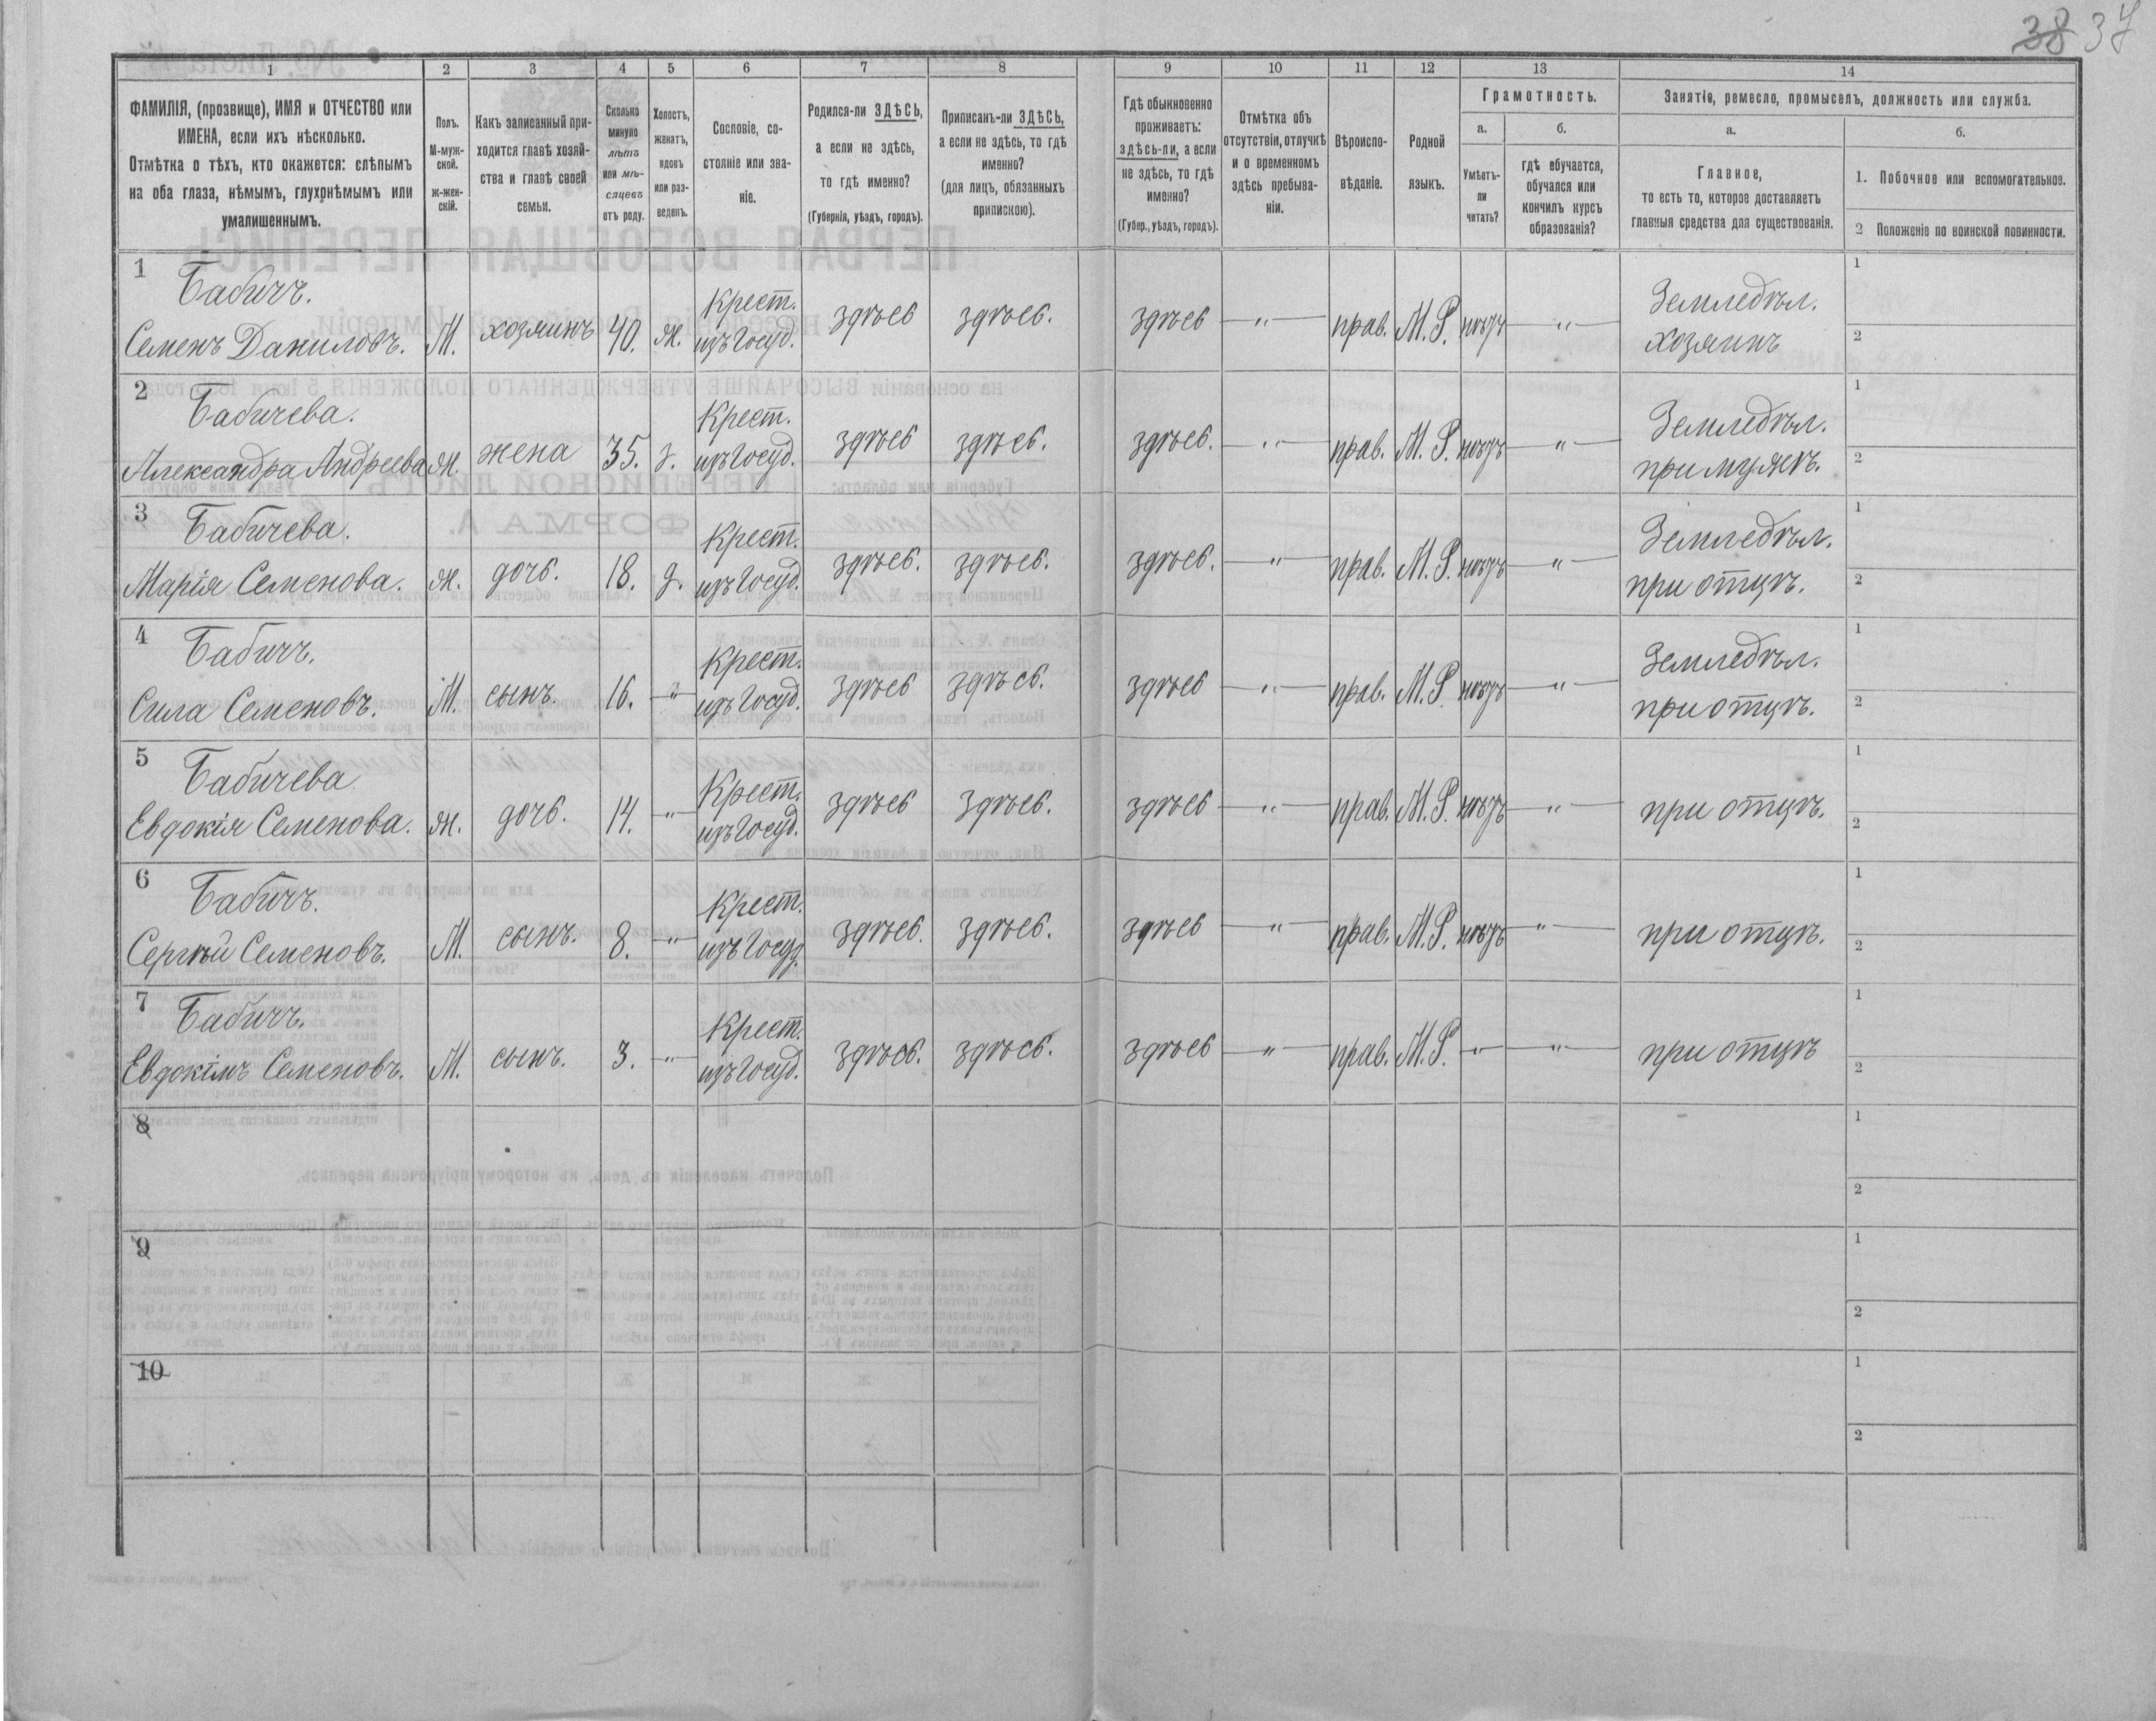 38 37
1 2 3 4 5 6 7 8 9 10 11 12 13 14
ФАМИЛІЯ, (прозвище), ИМЯ и ОТЧЕСТВО или
ИМЕНА, если ихъ нѣсколько.
Отмѣтка о тѣхъ, кто окажется: слѣпымъ
на оба глаза, нѣмымъ, глухонѣмымъ или
умалишеннымъ.
Полъ.
М-муж-
ской.
ж-жен-
скій.
Какъ записанный при-
ходится главѣ хозяй-
ства и главѣ своей
семьи.
Сколько
минуло
лѣтъ
или мѣ-
сяцевъ
отъ роду.
Холостъ,
женатъ,
вдовъ
или раз-
веденъ.
Сословіе, со-
стояніе или зва-
ніе.
Родился-ли ЗДѢСЬ,
а если не здѣсь,
то гдѣ именно?
(Губернія, уѣздъ, городъ).
Приписанъ-ли ЗДѢСЬ,
а если не здѣсь, то гдѣ
именно?
(для лицъ, обязанныхъ
припискою).
Гдѣ обыкновенно
проживаетъ:
здѣсь-ли, а если
не здѣсь, то гдѣ
именно?
(Губер., уѣздъ, городъ).
Отмѣтка объ
отсутствіи, отлучкѣ
и о временномъ
здѣсь пребыва-
ніи.
Вѣроиспо-
вѣданіе.
Родной
языкъ.
Грамотность.
а.
Умѣетъ-
ли
читать?
б.
гдѣ обучается,
обучался или
кончилъ курсъ
образованія?
Занятіе, ремесло, промыселъ, должность или служба.
а.
Главное,
то есть то, которое доставляетъ
главныя средства для существованія.
б.
1. Побочное или вспомогательное.
2 Положеніе по воинской повинности.
1 Бабичъ. Крест. Земледѣл. 1
Семенъ Даниловъ. М. хозяинъ 40. ж. изъ Госуд. здѣсь здѣсь. здѣсь — " — прав. М.Р. нѣтъ — " — хозяинъ 2
2 Бабичева. Крест. Земледѣл. 1
Александра Андреева ж. жена 35. з. изъ Госуд. здѣсь здѣсь. здѣсь. — " — прав. М.Р. нѣтъ — " — при мужѣ. 2
3 Бабичева. Крест. Земледѣл. 1
Марія Семенова. ж. дочь. 18. д. изъ Госуд. здѣсь. здѣсь. здѣсь. — " — прав. М.Р. нѣтъ — " — при отцѣ. 2
4 Бабичъ. Крест. Земледѣл. 1
Сила Семеновъ. М. сынъ. 16. — " — изъ Госуд. здѣсь здѣсь. здѣсь — " — прав. М.Р. нѣтъ — " — при отцѣ. 2
5 Бабичева Крест. 1
Евдокія Семенова. ж. дочь. 14. — " — изъ Госуд. здѣсь здѣсь. здѣсь — " — прав. М.Р. нѣтъ — " — при отцѣ. 2
6 Бабичъ. Крест. 1
Сергѣй Семеновъ. М. сынъ. 8. — " — изъ Госуд. здѣсь. здѣсь. здѣсь — " — прав. М.Р. нѣтъ — " — при отцѣ. 2
7 Бабичъ. Крест. 1
Евдокимъ Семеновъ. М. сынъ. 3. — " — изъ Госуд. здѣсь. здѣсь. здѣсь — " — прав. М.Р. — " — — " — при отцѣ 2
8 1
2
9 1
2
10 1
2